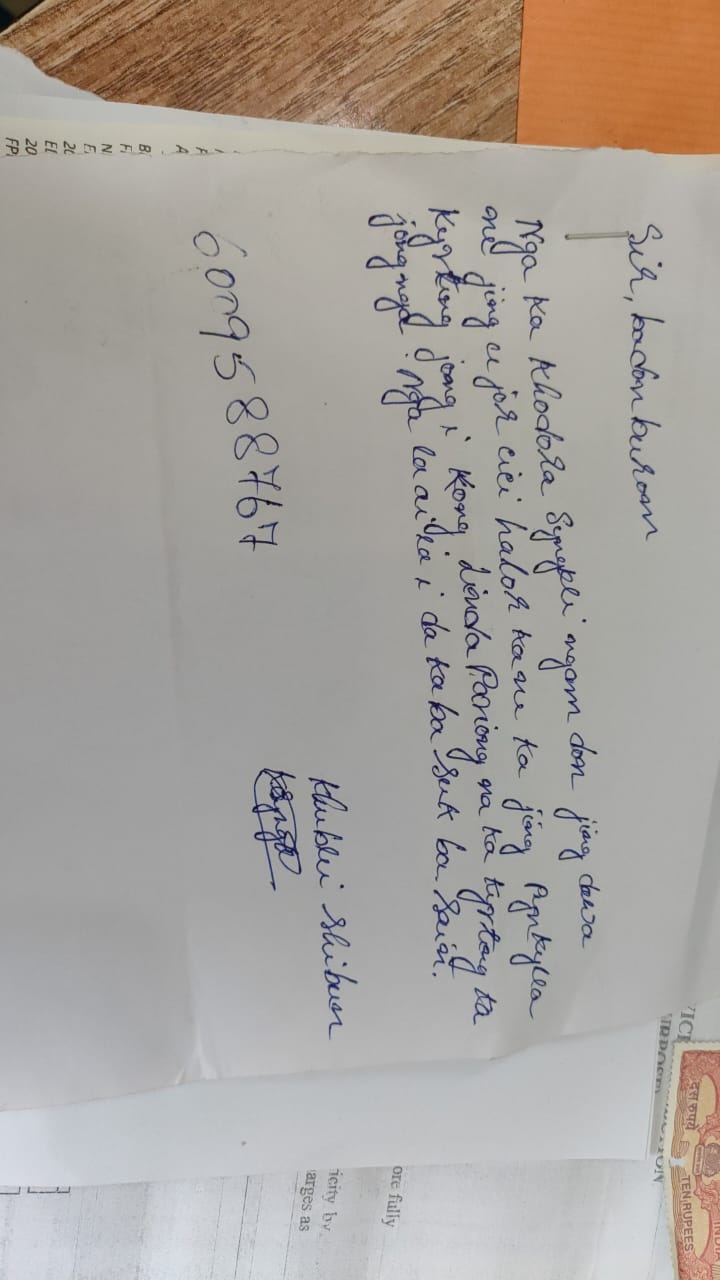 Sir, kadon burom
Nga ka Khodora Synrem ngam don jing dawa
ne jing ujor eiei halor kane ka jing Pynkylla
Kyrteng jong i Kong Linda Pariong na ka kyrteng ka
jong nga. Nga la ai ia i da kaba suk ba sain.
Khublei Shibun
6009588767
VICE
ION
दस रुपये
TEN RUPEES
INDIA
ore fully
icity by
arges as